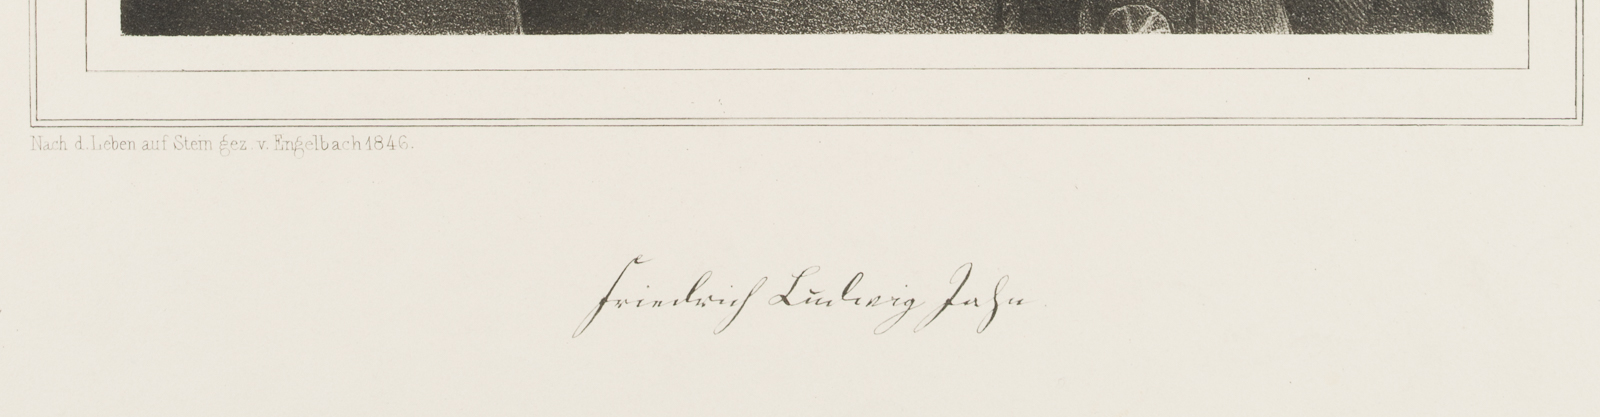 Nach d. Leben auf Stein gez. v. Engelbach 1846.
Friedrich Ludwig Jahn